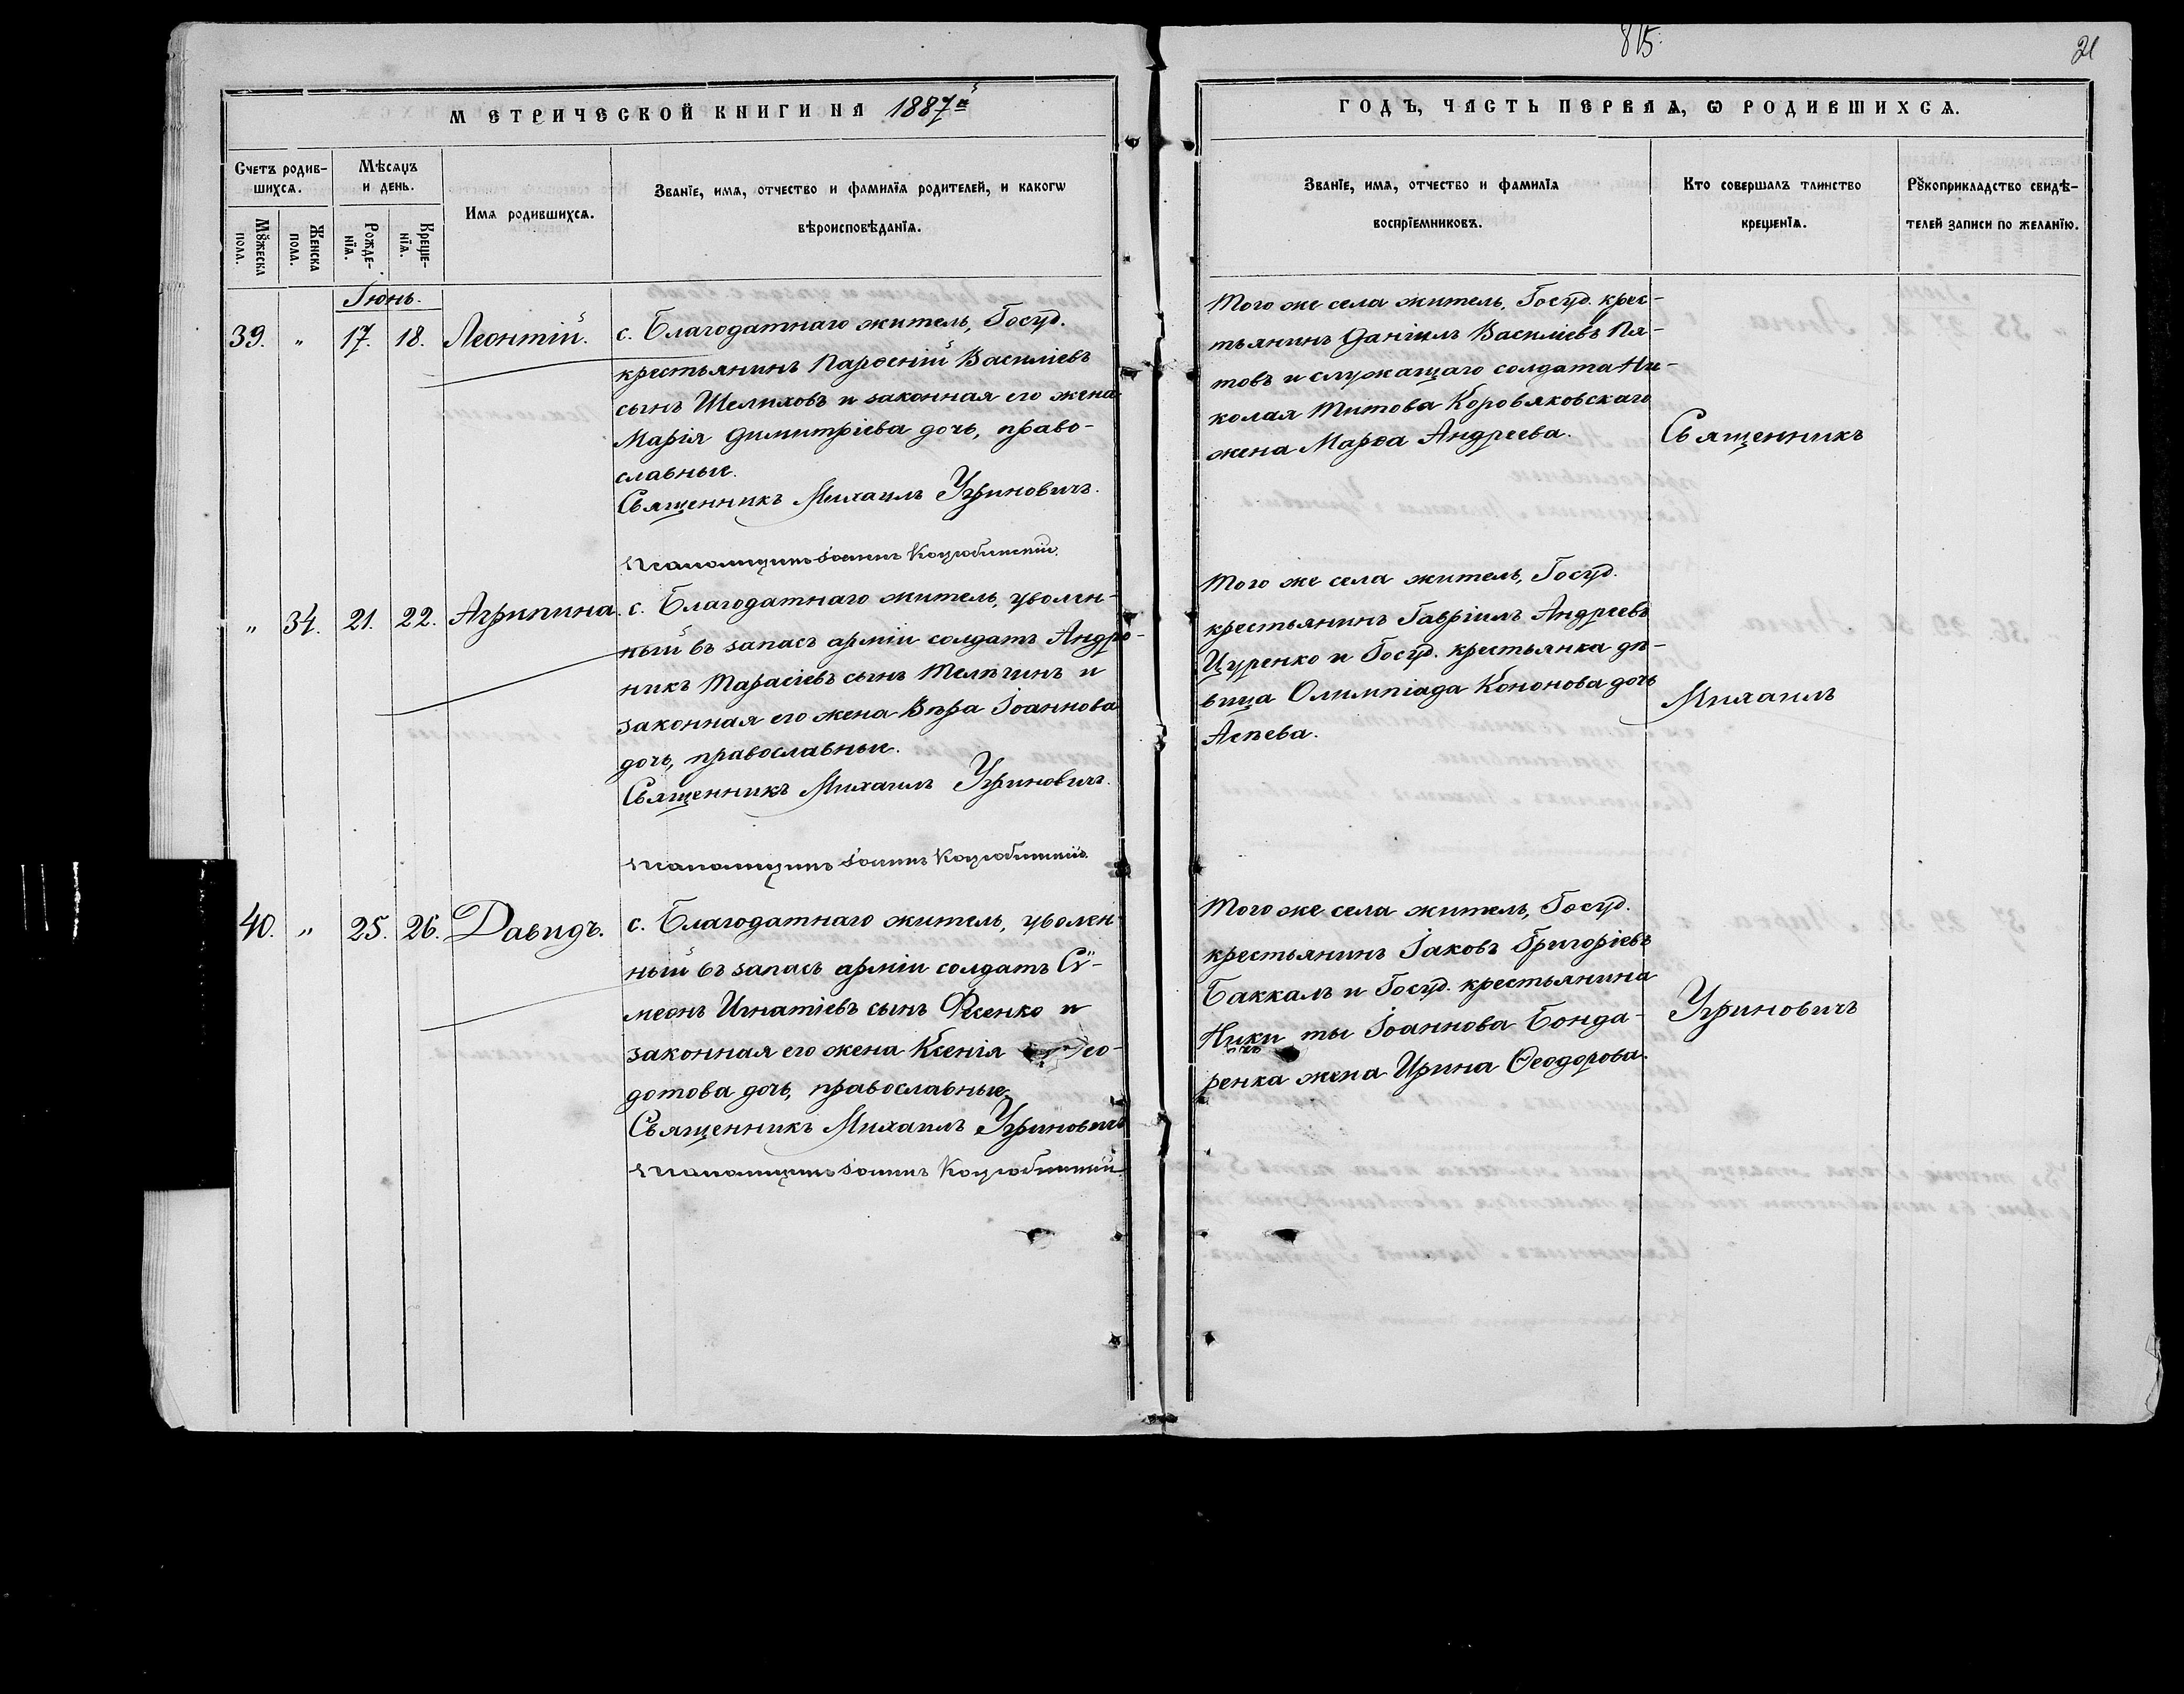 815.
21
МЕТРИЧЕСКОЙ КНИГИ НА 1887й
ГОДЪ, ЧАСТЬ ПЕРВАѦ, Ѡ РОДИВШИХСѦ.
Счетъ родив-
шихсѧ.
Мѣсѧцъ
и день.
Мꙋжеска
пола.
Женска
пола.
Рожде-
нїѧ.
Креще-
нїѧ.
Имѧ родившихсѧ.
Званїе, имѧ, отчество и фамилїѧ родителей, и какогѡ
вѣроисповѣданїѧ.
Званїе, имѧ, отчество и фамилїѧ
воспрїемниковъ.
Кто совершалъ таинство
крещенїѧ.
Рꙋкоприкладство свидѣ-
телей записи по желанїю.
Іюнь.
39. " 17. 18. Леонтій.
с. Благодатнаго житель, Госуд.
крестьянинъ Парѳеній Василіевъ
сынъ Шелиховъ и законная его жена
Марія Димитріева дочь, право-
славные.
Священникъ Михаилъ Угриновичъ.
Псаломщикъ Іоаннъ Коцюбинскій.
Того же села житель, Госуд. крес-
тьянинъ Даніилъ Василіевъ Пя-
товъ и служащаго солдата Ни-
колая Титова Коровяковскаго
жена Марѳа Андреева.
Священникъ
" 34. 21. 22. Агрипина.
с. Благодатнаго житель, уволен-
ный въ запасъ арміи солдатъ Андро-
никъ Тарасіевъ сынъ Телѣгинъ и
законная его жена Вѣра Іоаннова
дочь, православные.
Священникъ Михаилъ Угриновичъ.
Псаломщикъ Іоаннъ Коцюбинскій.
Того же села житель, Госуд.
крестьянинъ Гавріилъ Андреевъ
Цуренко и Госуд. крестьянка дѣ-
вица Олимпіада Кононова дочь
Аѳьева.
Михаилъ
40. " 25. 26. Давидъ.
с. Благодатнаго житель, уволен-
ный въ запасъ арміи солдатъ Сѵ-
меонъ Игнатіевъ сынъ Фесенко и
законная его жена Ксенія Ѳео-
дотова дочь, православные.
Священникъ Михаилъ Угриновичъ
Псаломщикъ Іоаннъ Коцюбинскій.
Того же села житель, Госуд.
крестьянинъ Іаковъ Григоріевъ
Баккалъ и Госуд. крестьянина
Никиты Іоаннова Бонда-
ренка жена Ирина Ѳеодорова.
Угриновичъ